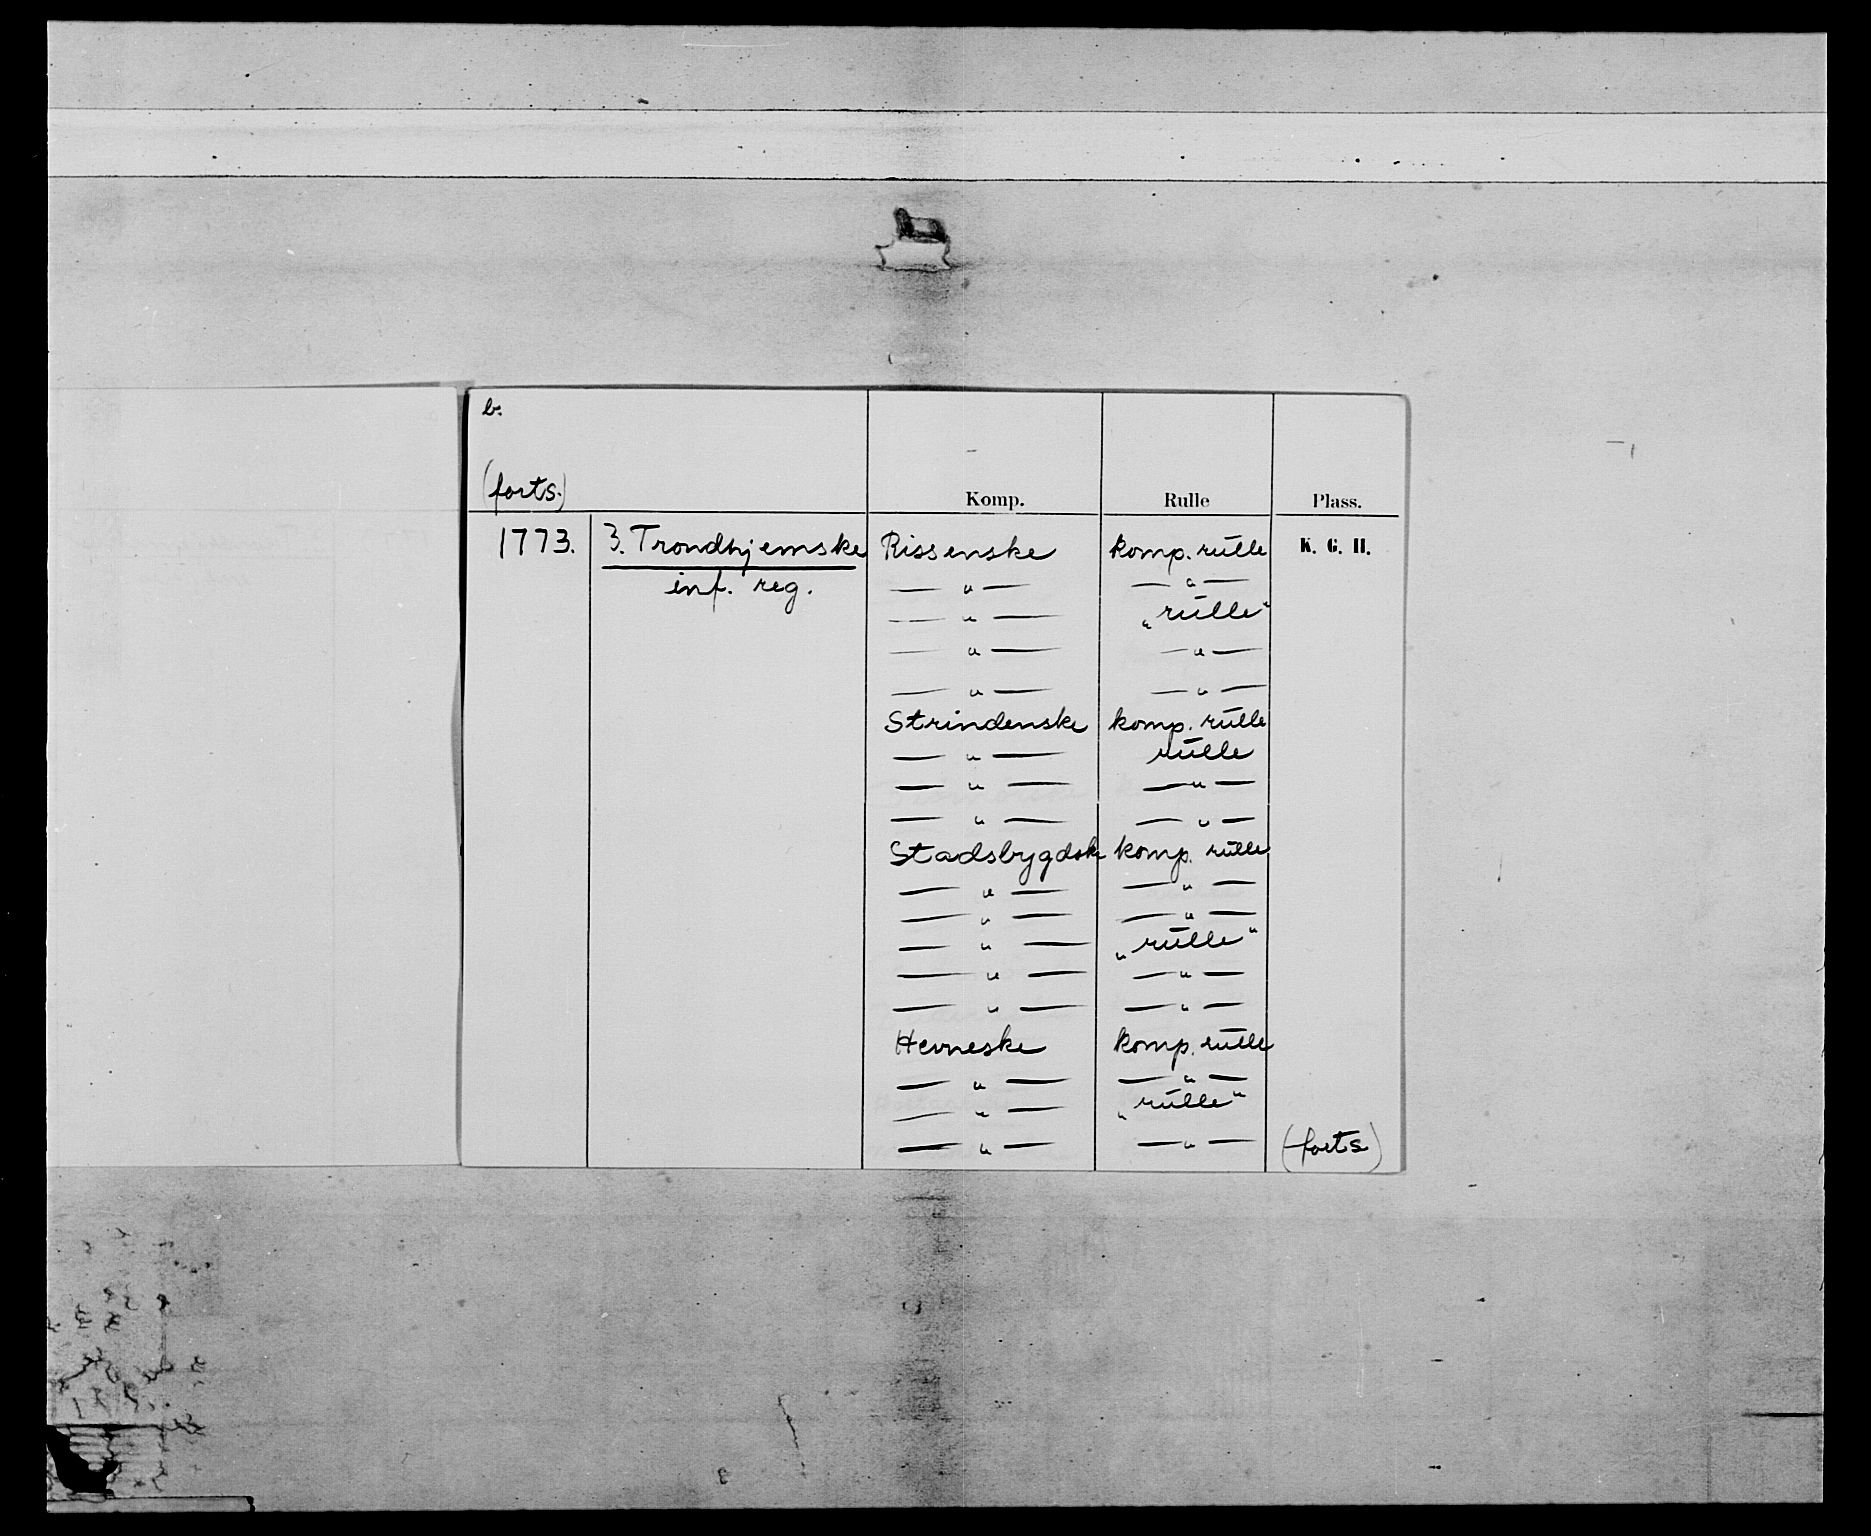 b.
(forts.)
Komp. Rulle Plass.
1773. 3. Trondhjemske Rissenske komp. rulle K. G. H.
inf. reg. — " — — " —
— " — „rulle“
— " — — " —
— " — — " —
Strindenske komp. rulle
— " — rulle
— " — — " —
— " — — " —
Stadsbygdske komp. rulle
— " — — " —
— " — — " —
— " — „rulle“
— " — — " —
— " — — " —
Hevneske komp. rulle
— " — — " —
— " — „rulle“
— " — — " — (forts)